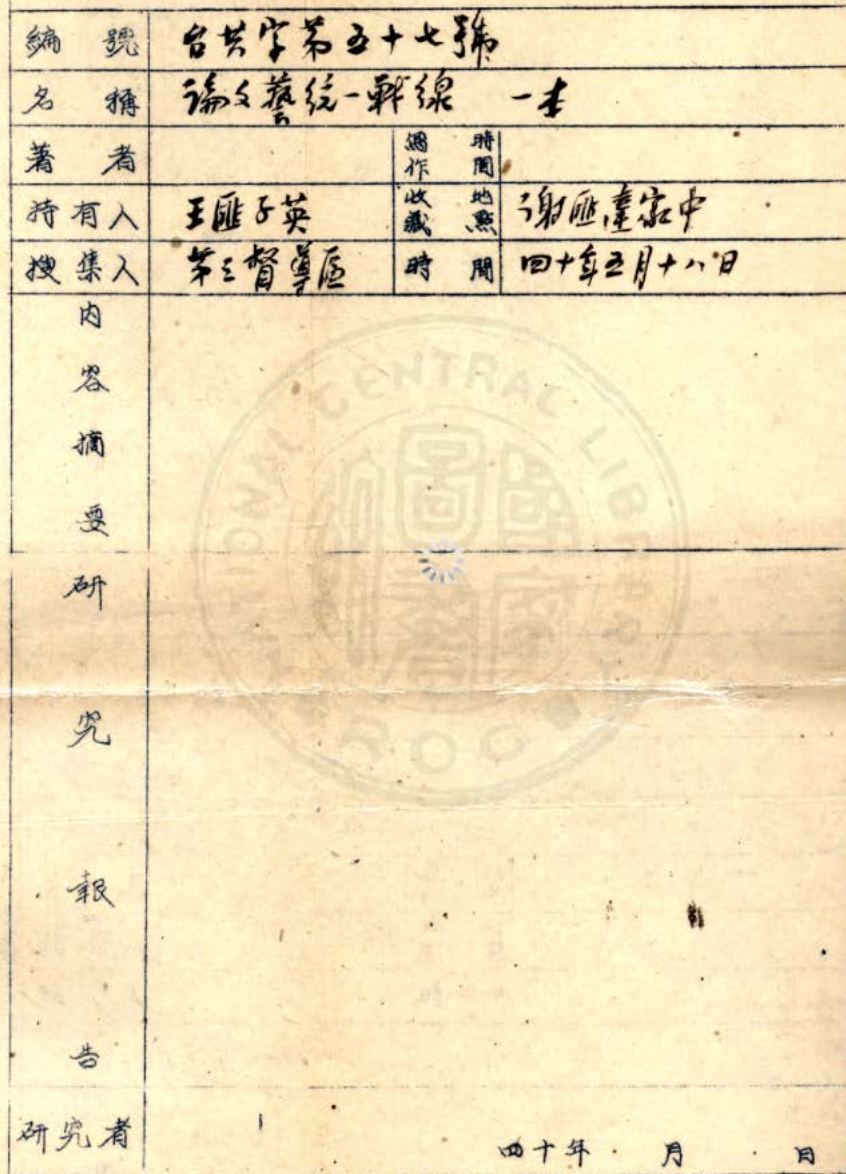 編號 台共字第五十七號
名稱 論文藝統一戰線 一本
著者 編作時間
持有人 王匪子英 收藏地點 謝匪臺家中
搜集人 第三督導區 時間 四十年五月十八日
內容摘要
研究報告
研究者 四十年 月 日
NATIONAL CENTRAL LIBRARY